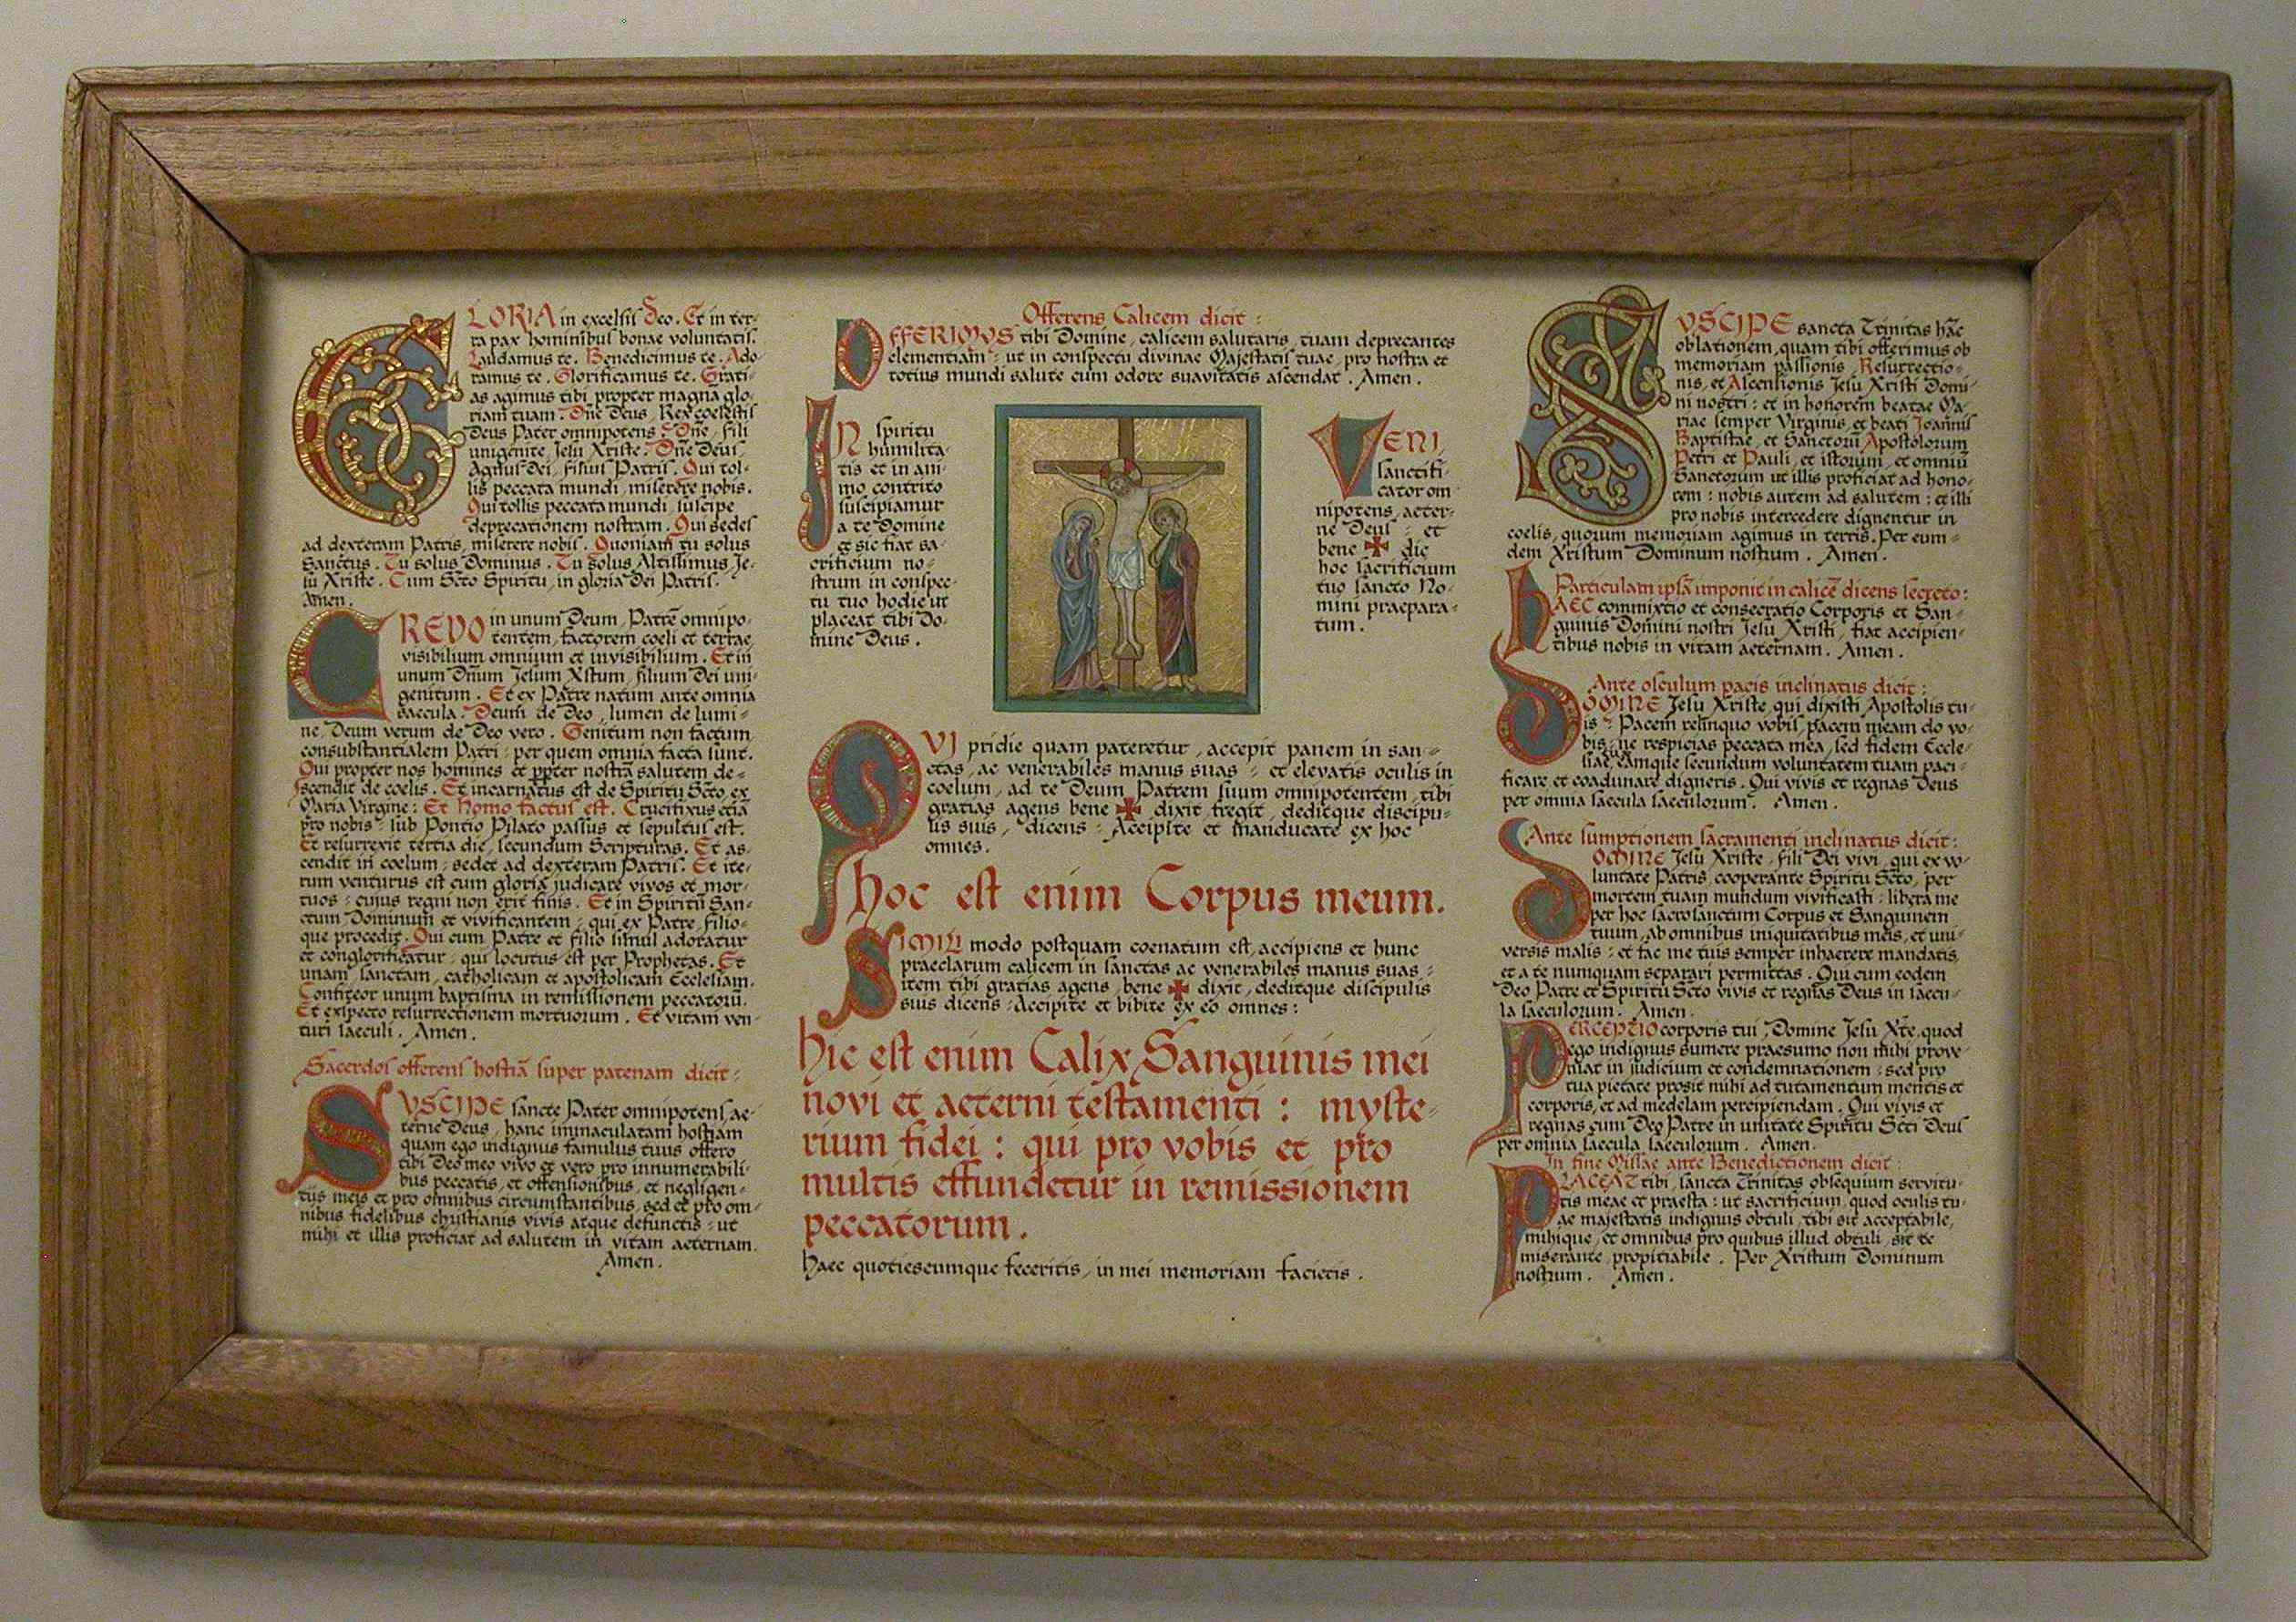 GLORIA in excelsis Deo. Et in ter-
ra pax hominibus bonae voluntatis.
Laudamus te. Benedicimus te. Ado
ramus te. Glorificamus te. Grati-
as agimus tibi propter magna glo
riam tuam. Dñe Deus, Rex coelestis
Deus Pater omnipotens. Dñe, fili
unigenite, Jesu Xriste. Dñe Deus,
Agnus Dei, filius Patris. Qui tol-
lis peccata mundi, miserere nobis.
Qui tollis peccata mundi, suscipe
deprecationem nostram. Qui sedes
ad dexteram Patris, miserere nobis. Quoniam tu solus
Sanctus. Tu solus Dominus. Tu solus Altissimus Je-
su Xriste. Cum Scto Spiritu, in gloria Dei Patris.
Amen.
CREDO in unum Deum, Patrē omnipo-
tentem, factorem coeli et terrae,
visibilium omnium et invisibilium. Et in
unum Dñum Jesum Xstum, filium Dei uni-
genitum. Et ex Patre natum ante omnia
saecula. Deum de Deo, lumen de lumi-
ne, Deum verum de Deo vero. Genitum non factum,
consubstantialem Patri: per quem omnia facta sunt.
Qui propter nos homines et ppter nostrā salutem de-
scendit de coelis. Et incarnatus est de Spiritu Scto, ex
Maria Virgine: Et homo factus est. Crucifixus etiā
pro nobis: sub Pontio Pilato passus et sepultus est.
Et resurrexit tertia die, secundum Scripturas. Et as-
cendit in coelum: sedet ad dexteram Patris. Et ite-
rum venturus est cum gloria judicare vivos et mor-
tuos: cujus regni non erit finis. Et in Spiritū San-
ctum Dominum et vivificantem: qui ex Patre, filio-
que procedit. Qui cum Patre et filio simul adoratur
et conglorificatur: qui locutus est per Prophetas. Et
unam, sanctam, catholicam et apostolicam Ecclesiam.
Confiteor unum baptisma in remissionem peccatorū.
Et exspecto resurrectionem mortuorum. Et vitam ven-
turi saeculi. Amen.
Sacerdos offerens hostiā super patenam dicit:
SUSCIPE sancte Pater omnipotens, ae-
terne Deus, hanc immaculatam hostiam
quam ego indignus famulus tuus offero
tibi Deo meo vivo et vero pro innumerabili-
bus peccatis, et offensionibus, et negligen-
tiis meis et pro omnibus circumstantibus, sed et pro om-
nibus fidelibus christianis vivis atque defunctis: ut
mihi et illis proficiat ad salutem in vitam aeternam.
Amen.
Offerens Calicem dicit:
OFFERIMUS tibi Domine, calicem salutaris, tuam deprecantes
clementiam: ut in conspectu divinae Majestatis tuae, pro nostra et
totius mundi salute cum odore suavitatis ascendat. Amen.
IN spiritu
humilita-
tis et in ani-
mo contrito
suscipiamur
a te Domine
et sic fiat sa-
crificium no-
strum in conspec-
tu tuo hodie ut
placeat tibi Do-
mine Deus.
VENI,
sanctifi-
cator om
nipotens, aeter-
ne Deus: et
bene ✠ dic
hoc sacrificium
tuo sancto No-
mini praepara-
tum.
QUI pridie quam pateretur, accepit panem in san-
ctas, ac venerabiles manus suas: et elevatis oculis in
coelum, ad te Deum Patrem suum omnipotentem, tibi
gratias agens bene ✠ dixit fregit, deditque discipu-
lis suis, dicens: Accipite et manducate ex hoc
omnes.
Hoc est enim Corpus meum.
SIMILI modo postquam coenatum est, accipiens et hunc
praeclarum calicem in sanctas ac venerabiles manus suas:
item tibi gratias agens, bene ✠ dixit, deditque discipulis
suis dicens: Accipite et bibite ex eo omnes:
Hic est enim Calix Sanguinis mei
novi et aeterni testamenti: myste-
rium fidei: qui pro vobis et pro
multis effundetur in remissionem
peccatorum.
Haec quotiescumque feceritis, in mei memoriam facietis.
SUSCIPE sancta Trinitas hāc
oblationem, quam tibi offerimus ob
memoriam passionis, Resurrectio-
nis, et Ascensionis Jesu Xristi Domi-
ni nostri: et in honorem beatae Ma-
riae semper Virginis, et beati Joannis
Baptistae, et Sanctorū Apostolorum
Petri et Pauli, et istorum, et omniū
Sanctorum ut illis proficiat ad hono-
rem: nobis autem ad salutem: et illi
pro nobis intercedere dignentur in
coelis, quorum memoriam agimus in terris. Per eum-
dem Xristum Dominum nostrum. Amen.
Particulam ipsā imponit in calicē dicens secreto:
HAEC commixtio et consecratio Corporis et San-
guinis Domini nostri Jesu Xristi, fiat accipien-
tibus nobis in vitam aeternam. Amen.
Ante osculum pacis inclinatus dicit:
DOMINE Jesu Xriste, qui dixisti Apostolis tu-
is: Pacem relinquo vobis, pacem meam do vo-
bis: ne respicias peccata mea, sed fidem Eccle-
siae, eamque secundum voluntatem tuam paci-
ficare et coadunare digneris. Qui vivis et regnas Deus
per omnia saecula saeculorum. Amen.
Ante sumptionem sacramenti inclinatus dicit:
DOMINE Jesu Xriste, fili Dei vivi, qui ex vo-
luntate Patris, cooperante Spiritu Scto, per
mortem tuam mundum vivificasti: libera me
per hoc sacrosanctum Corpus et Sanguinem
tuum, ab omnibus iniquitatibus meis, et uni-
versis malis: et fac me tuis semper inhaerere mandatis,
et a te numquam separari permittas. Qui cum eodem
Deo Patre et Spiritu Scto vivis et regnas Deus in saecu-
la saeculorum. Amen.
PERCEPTIO corporis tui, Domine Jesu Xte, quod
ego indignus sumere praesumo non mihi prove-
niat in judicium et condemnationem: sed pro
tua pietate prosit mihi ad tutamentum mentis et
corporis, et ad medelam percipiendam. Qui vivis et
regnas cum Deo Patre in unitate Spiritu Scti Deus
per omnia saecula saeculorum. Amen.
In fine Missae ante Benedictionem dicit:
PLACEAT tibi, sancta Trinitas obsequium servitu-
tis meae et praesta: ut sacrificium, quod oculis tu-
ae majestatis indignus obtuli, tibi sit acceptabile,
mihique, et omnibus pro quibus illud obtuli, sit te
miserante, propitiabile. Per Xristum Dominum
nostrum. Amen.